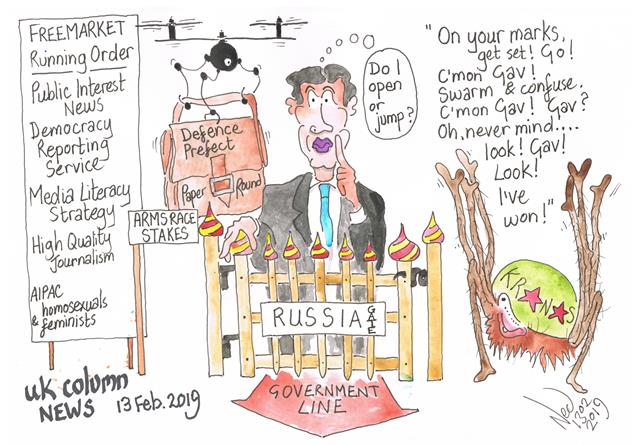 FREEMARKET
Running Order
Public Interest
News
Democracy
Reporting
Service
Media Literacy
Strategy
High Quality
Journalism
AIPAC
homosexuals
& feminists
Defence
Prefect
Paper Round
ARMS RACE
STAKES
Do I
open
or
jump?
RUSSIA GATE
GOVERNMENT
LINE
"On your marks,
get set! Go!
C'mon Gav!
Swarm & confuse.
C'mon Gav! Gav?
Oh, never mind....
look! Gav!
Look!
I've
won!"
uk column
NEWS 13 Feb. 2019